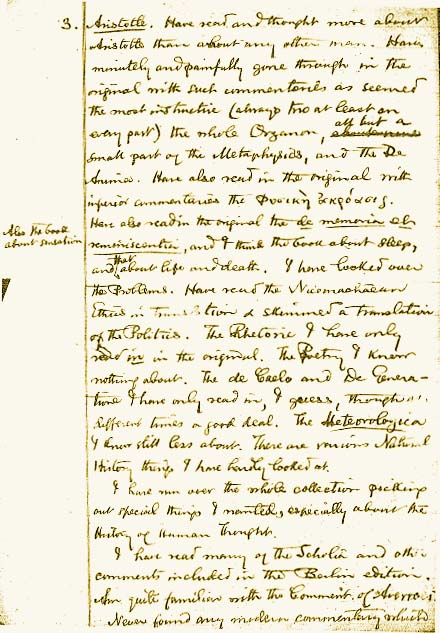 3. Aristotle. Have read and thought more about
Aristotle than about any other man. Have
minutely and painfully gone through in the
original with such commentaries as seemed
the most instructive (always two at least on
every part) the whole Organon, all but a
small part of the Metaphysics, and the De
Anima. Have also read in the original with
inferior commentaries the Φυσικὴ ἀκρόασις.
Also the book
about sensation
Have also read in the original the de memoria et
reminiscentia, and I think the book about sleep,
and that about life and death. I have looked over
the Problems. Have read the Nicomachaean
Ethics in translation & skimmed a translation
of the Politics. The Rhetoric I have only
read in in the original. The Poetry I know
nothing about. The de Caelo and De Genera-
tione I have only read in, I guess, through
different times a good deal. The Meteorologica
I know still less about. There are various Natural
History things I have hardly looked at.
I have run over the whole collection picking
out special things I wanted, especially about the
History of Human Thought.
I have read many of the Scholia and other
comments included in the Berlin edition.
Am quite familiar with the Comment. of Averroes.
Never found any modern commentary which